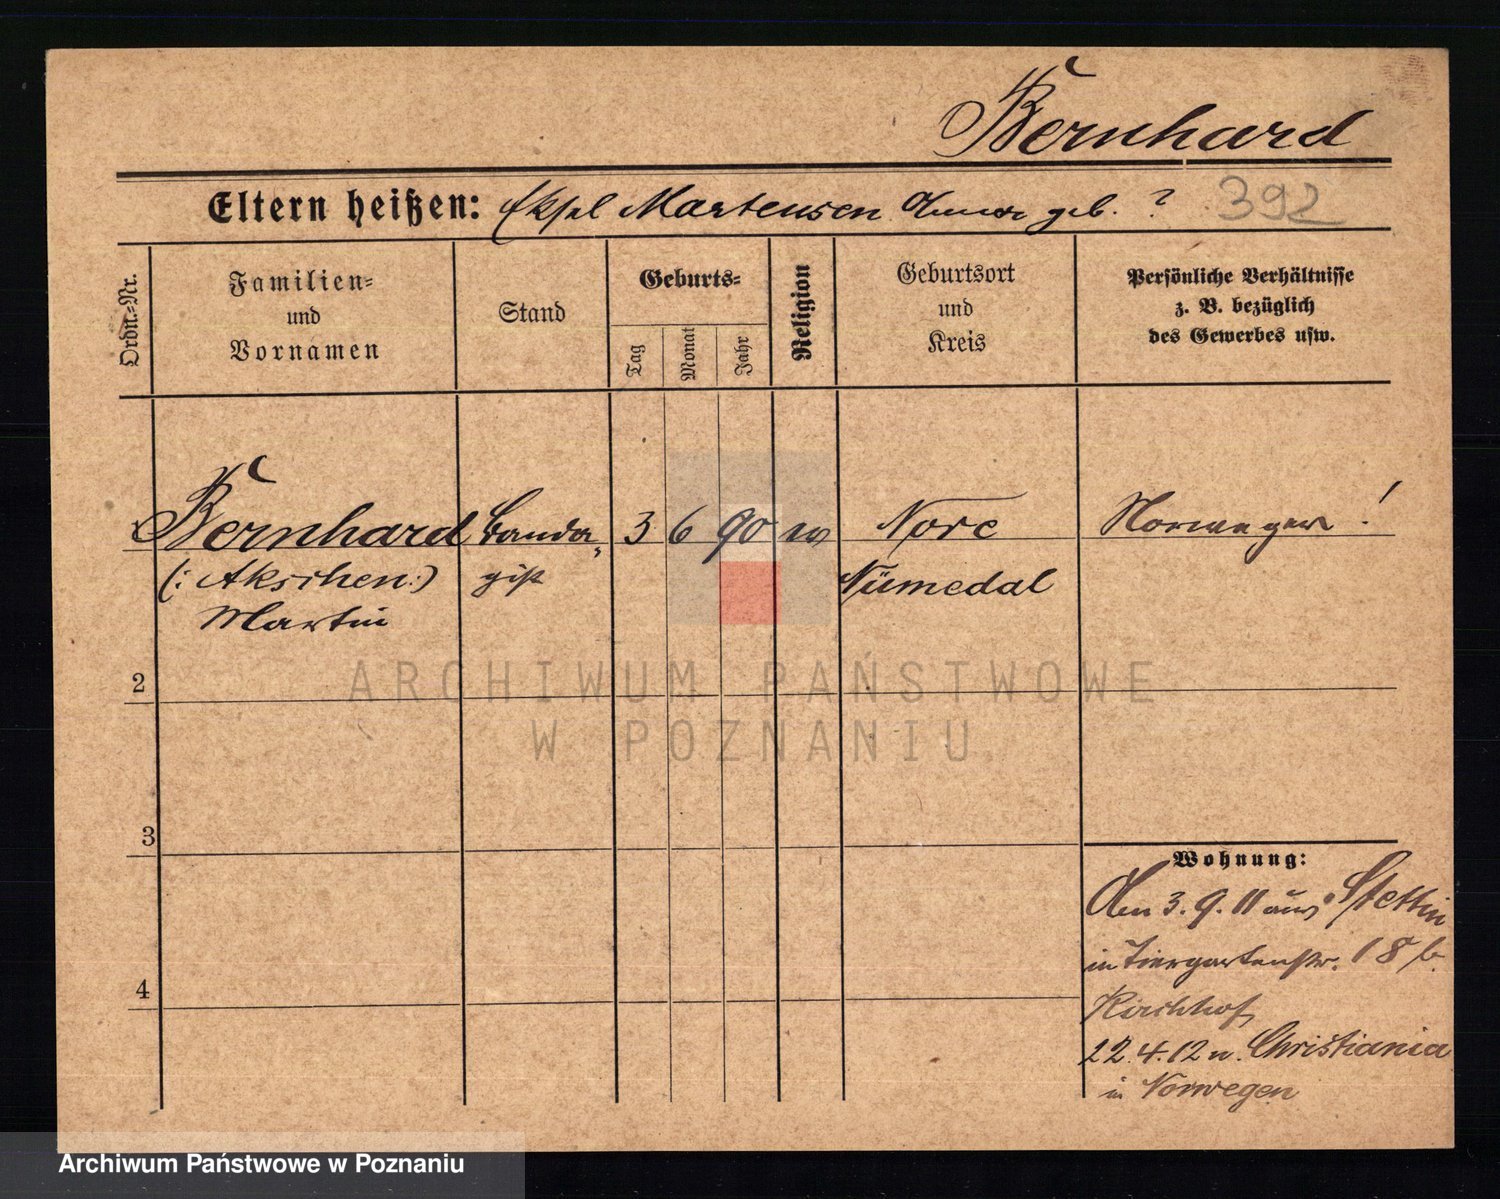 Bernhard
Eltern heißen: Martensen geb. ? 392
Ordn.-Nr.
Familien-
und
Vornamen
Stand
Geburts-
Tag
Monat
Jahr
Religion
Geburtsort
und
Kreis
Persönliche Verhältnisse
z. B. bezüglich
des Gewerbes usw.
Bernhard Banda- 3 6 90 ev Nore Norweger!
(: Akschen :) gist Nümedal
Martin
2
3
4
Wohnung:
Am 3.9.11 aus Stettin
in Tiergartenstr. 18 b.
Kirchhof
22.4.12 n. Christiania
in Norwegen
ARCHIWUM PAŃSTWOWE
W POZNANIU
Archiwum Państwowe w Poznaniu